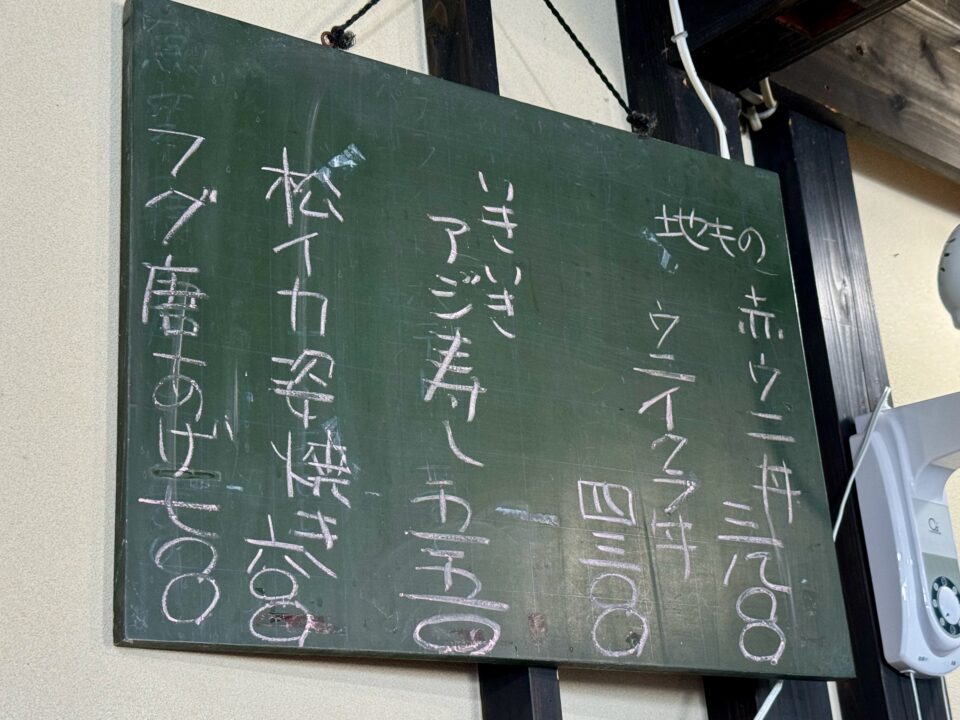 地もの
赤ウニ丼 三八〇〇
ウニイクラ丼 四三〇〇
いきいき
アジ寿し 五五〇
松イカ姿焼き 六〇〇
フグ唐あげ 七〇〇